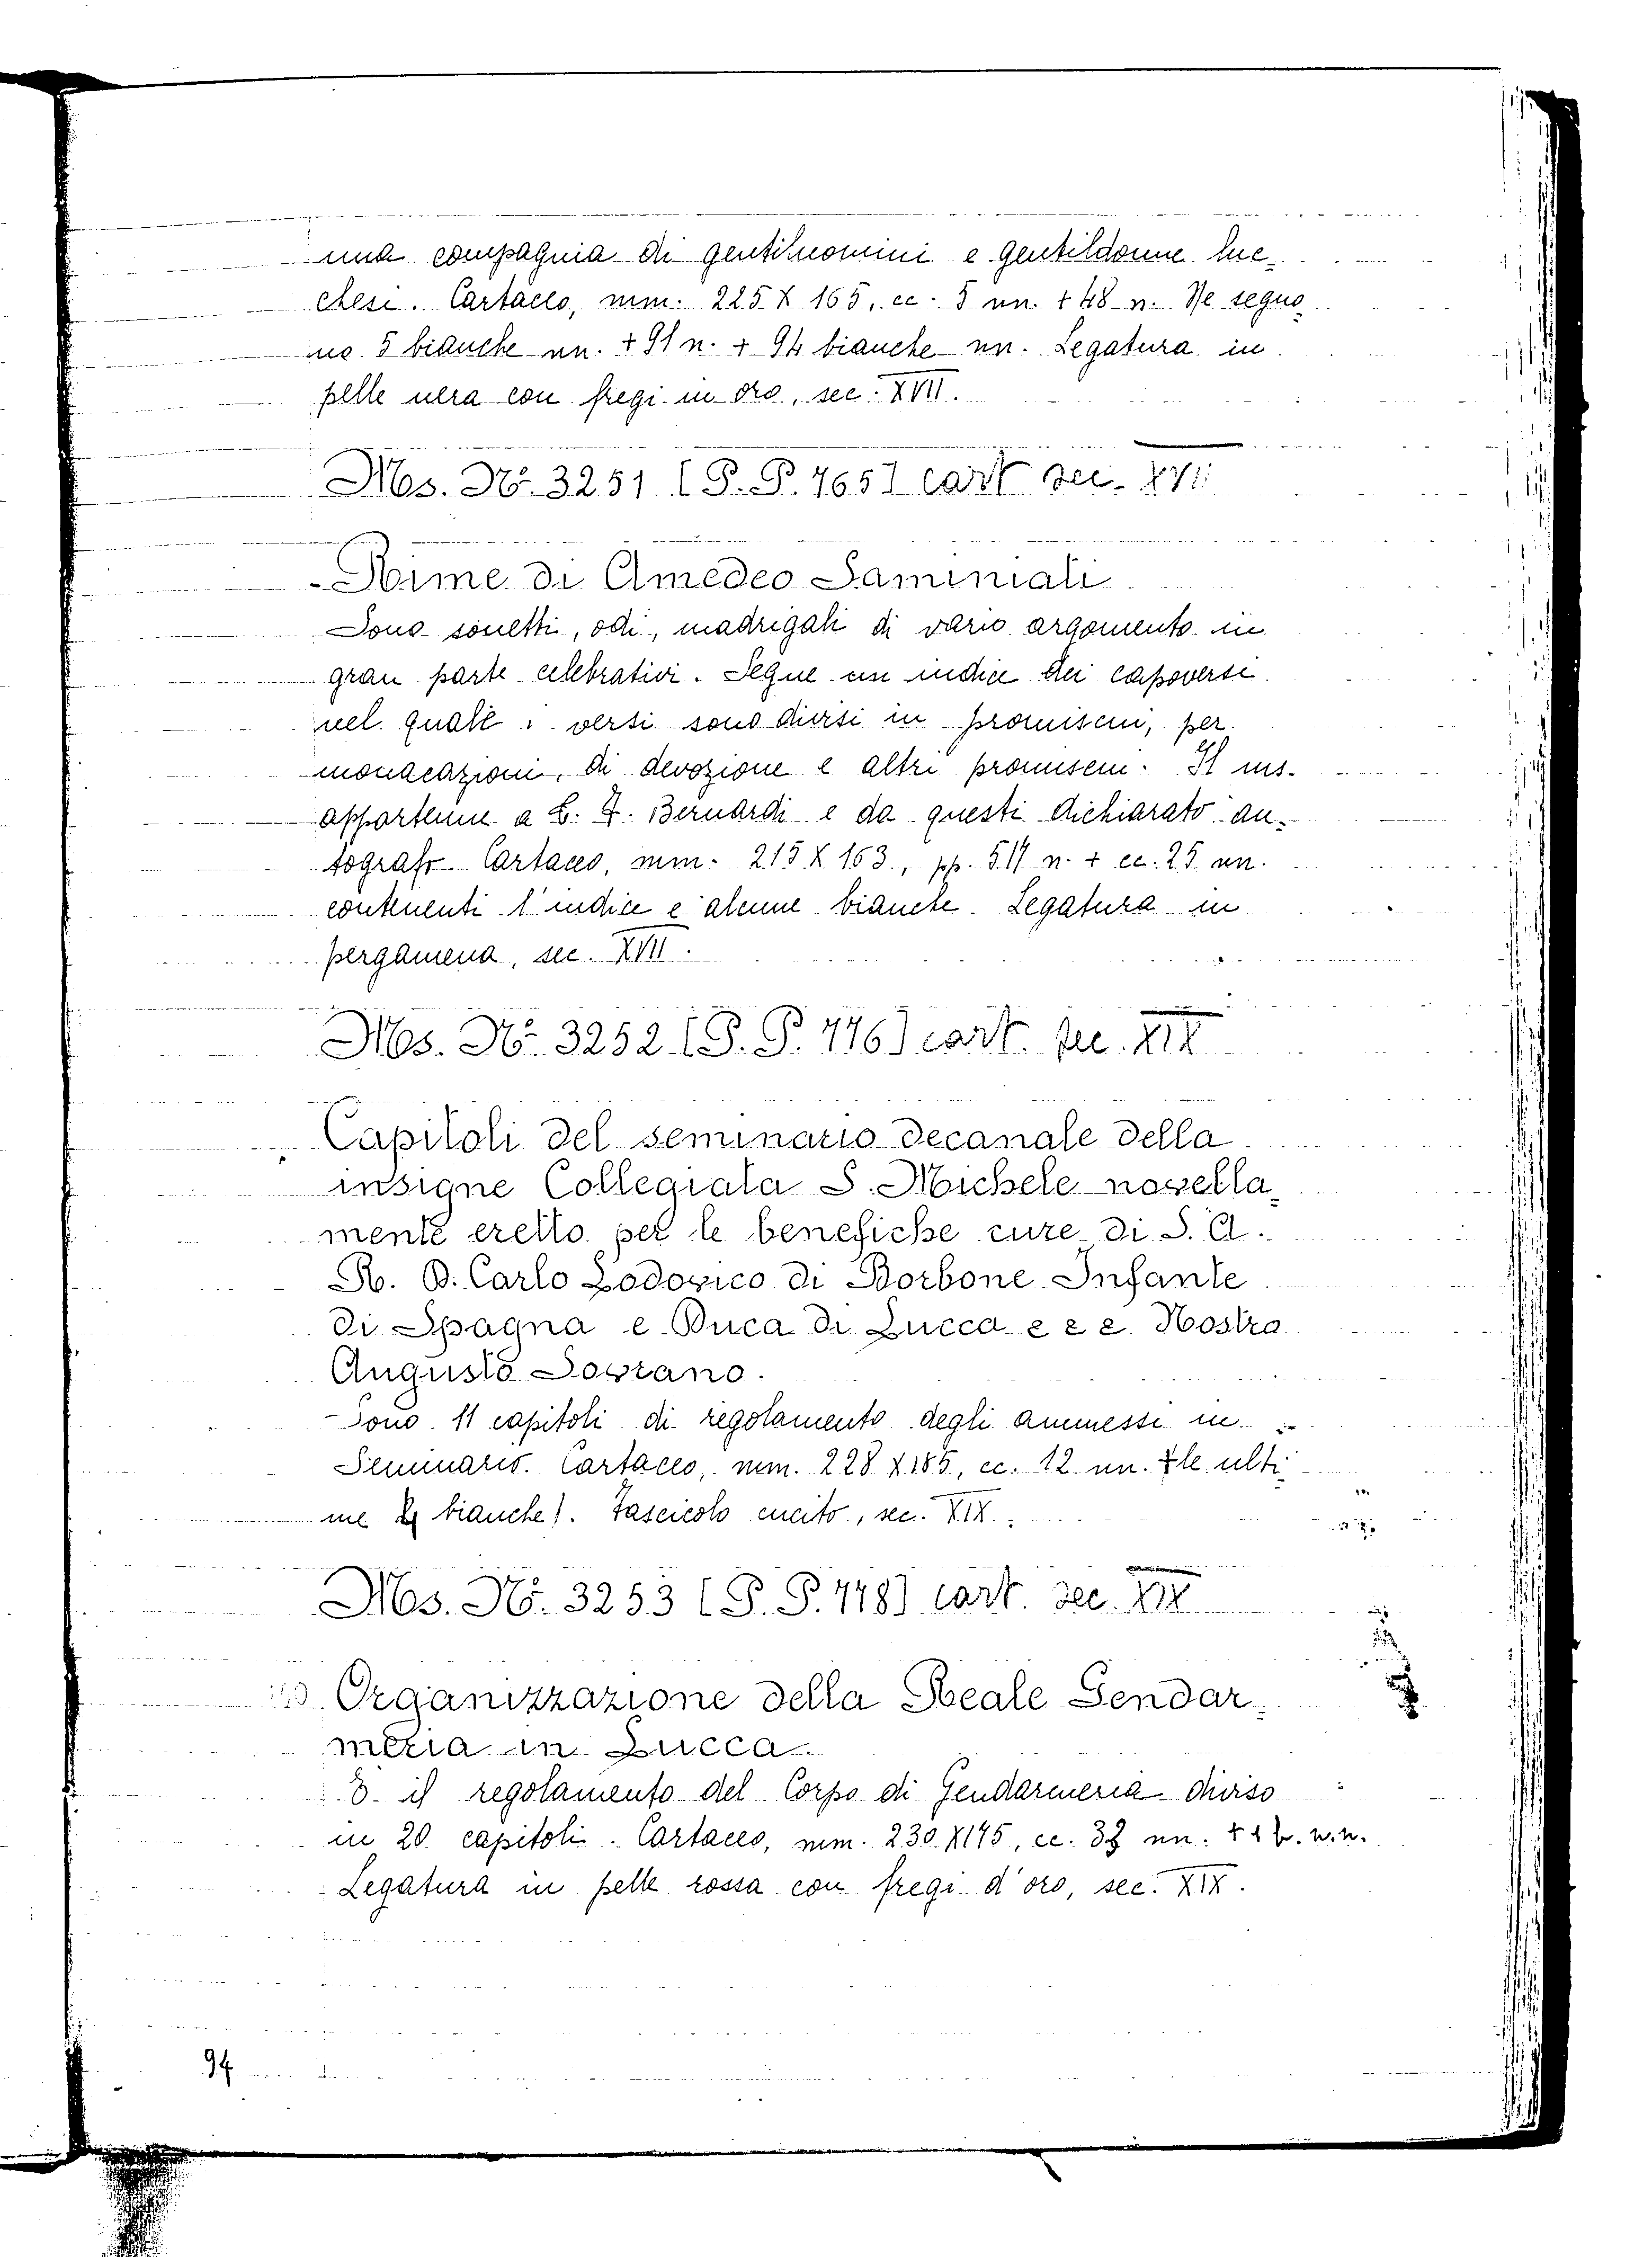 una compagnia di gentiluomini e gentildonne luc-
chesi. Cartaceo, mm. 225 X 165, cc. 5 nn. + 48 n. Ne seguo-
no 5 bianche nn. + 91 n. + 94 bianche nn. Legatura in
pelle nera con fregi in oro, sec. XVII.
Ms. N.º 3251 [P. P. 765] cart. sec. XVII
Rime di Amedeo Saminiati
Sono sonetti, odi, madrigali di vario argomento in
gran parte celebrativi. Segue un indice dei capoversi
nel quale i versi sono divisi in promiscui, per
monacazioni, di devozione e altri promiscui. Il ms.
appartenne a Bernardi e da questi dichiarato au-
tografo. Cartaceo, mm. 215 X 163, pp. 517 n. + cc. 25 nn.
contenenti l'indice e alcune bianche. Legatura in
pergamena, sec. XVII.
Ms. N.º 3252 [P. P. 776] cart. sec. XIX
Capitoli del seminario decanale della
insigne Collegiata S. Michele novella-
mente eretto per le benefiche cure di S. A.
R. D. Carlo Lodovico di Borbone Infante
di Spagna e Duca di Lucca e e e Nostro
Augusto Sovrano.
Sono 11 capitoli di regolamento degli ammessi in
Seminario. Cartaceo, mm. 228 X 185, cc. 12 nn. (le ulti-
me bianche). Fascicolo cucito, sec. XIX.
Ms. N.º 3253 [P. P. 778] cart. sec. XIX
Organizzazione della Reale Gendar-
meria in Lucca.
È il regolamento del Corpo di Gendarmeria diviso
in 20 capitoli. Cartaceo, mm. 230 X 175, cc. nn. + 1 b. n.n.
Legatura in pelle rossa con fregi d'oro, sec. XIX.
94